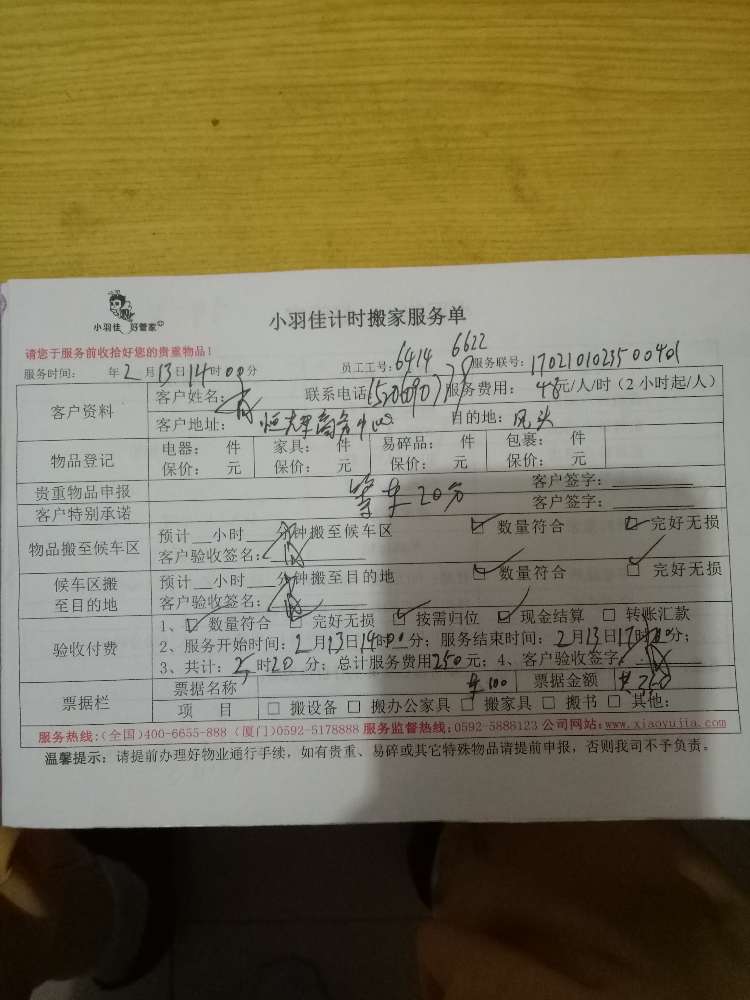 小羽佳 好管家
小羽佳计时搬家服务单
请您于服务前收拾好您的贵重物品!
服务时间: 年2月13日14时00分 员工工号:6414 6622 服务联号:17021010235
客户资料 客户姓名: 联系电话: 服务费用: 48元/人/时(2小时起/人)
客户地址: 商务中心 目的地:
物品登记 电器: 件 家具: 件 易碎品: 件 包裹: 件
保价: 元 保价: 元 保价: 元 保价: 元
贵重物品申报 等车20分 客户签字:
客户特别承诺 客户签字:
物品搬至候车区 预计__小时__分钟搬至候车区 数量符合 完好无损
客户验收签名:
候车区搬至目的地 预计__小时__分钟搬至目的地 数量符合 完好无损
客户验收签名:
验收付费 1、 数量符合 完好无损 按需归位 现金结算 转账汇款
2、服务开始时间:2月13日14时00分;服务结束时间:2月13日17时20分;
3、共计: 时20分;总计服务费用250元;4、客户验收签字:
票据栏 票据名称 车100 票据金额 共350
项 目 搬设备 搬办公家具 搬家具 搬书 其他:
服务热线:(全国)400-6655-888 (厦门)0592-5178888 服务监督热线:0592-5888123 公司网站:www.xiaoyujia.com
温馨提示:请提前办理好物业通行手续,如有贵重、易碎或其它特殊物品请提前申报,否则我司不予负责。